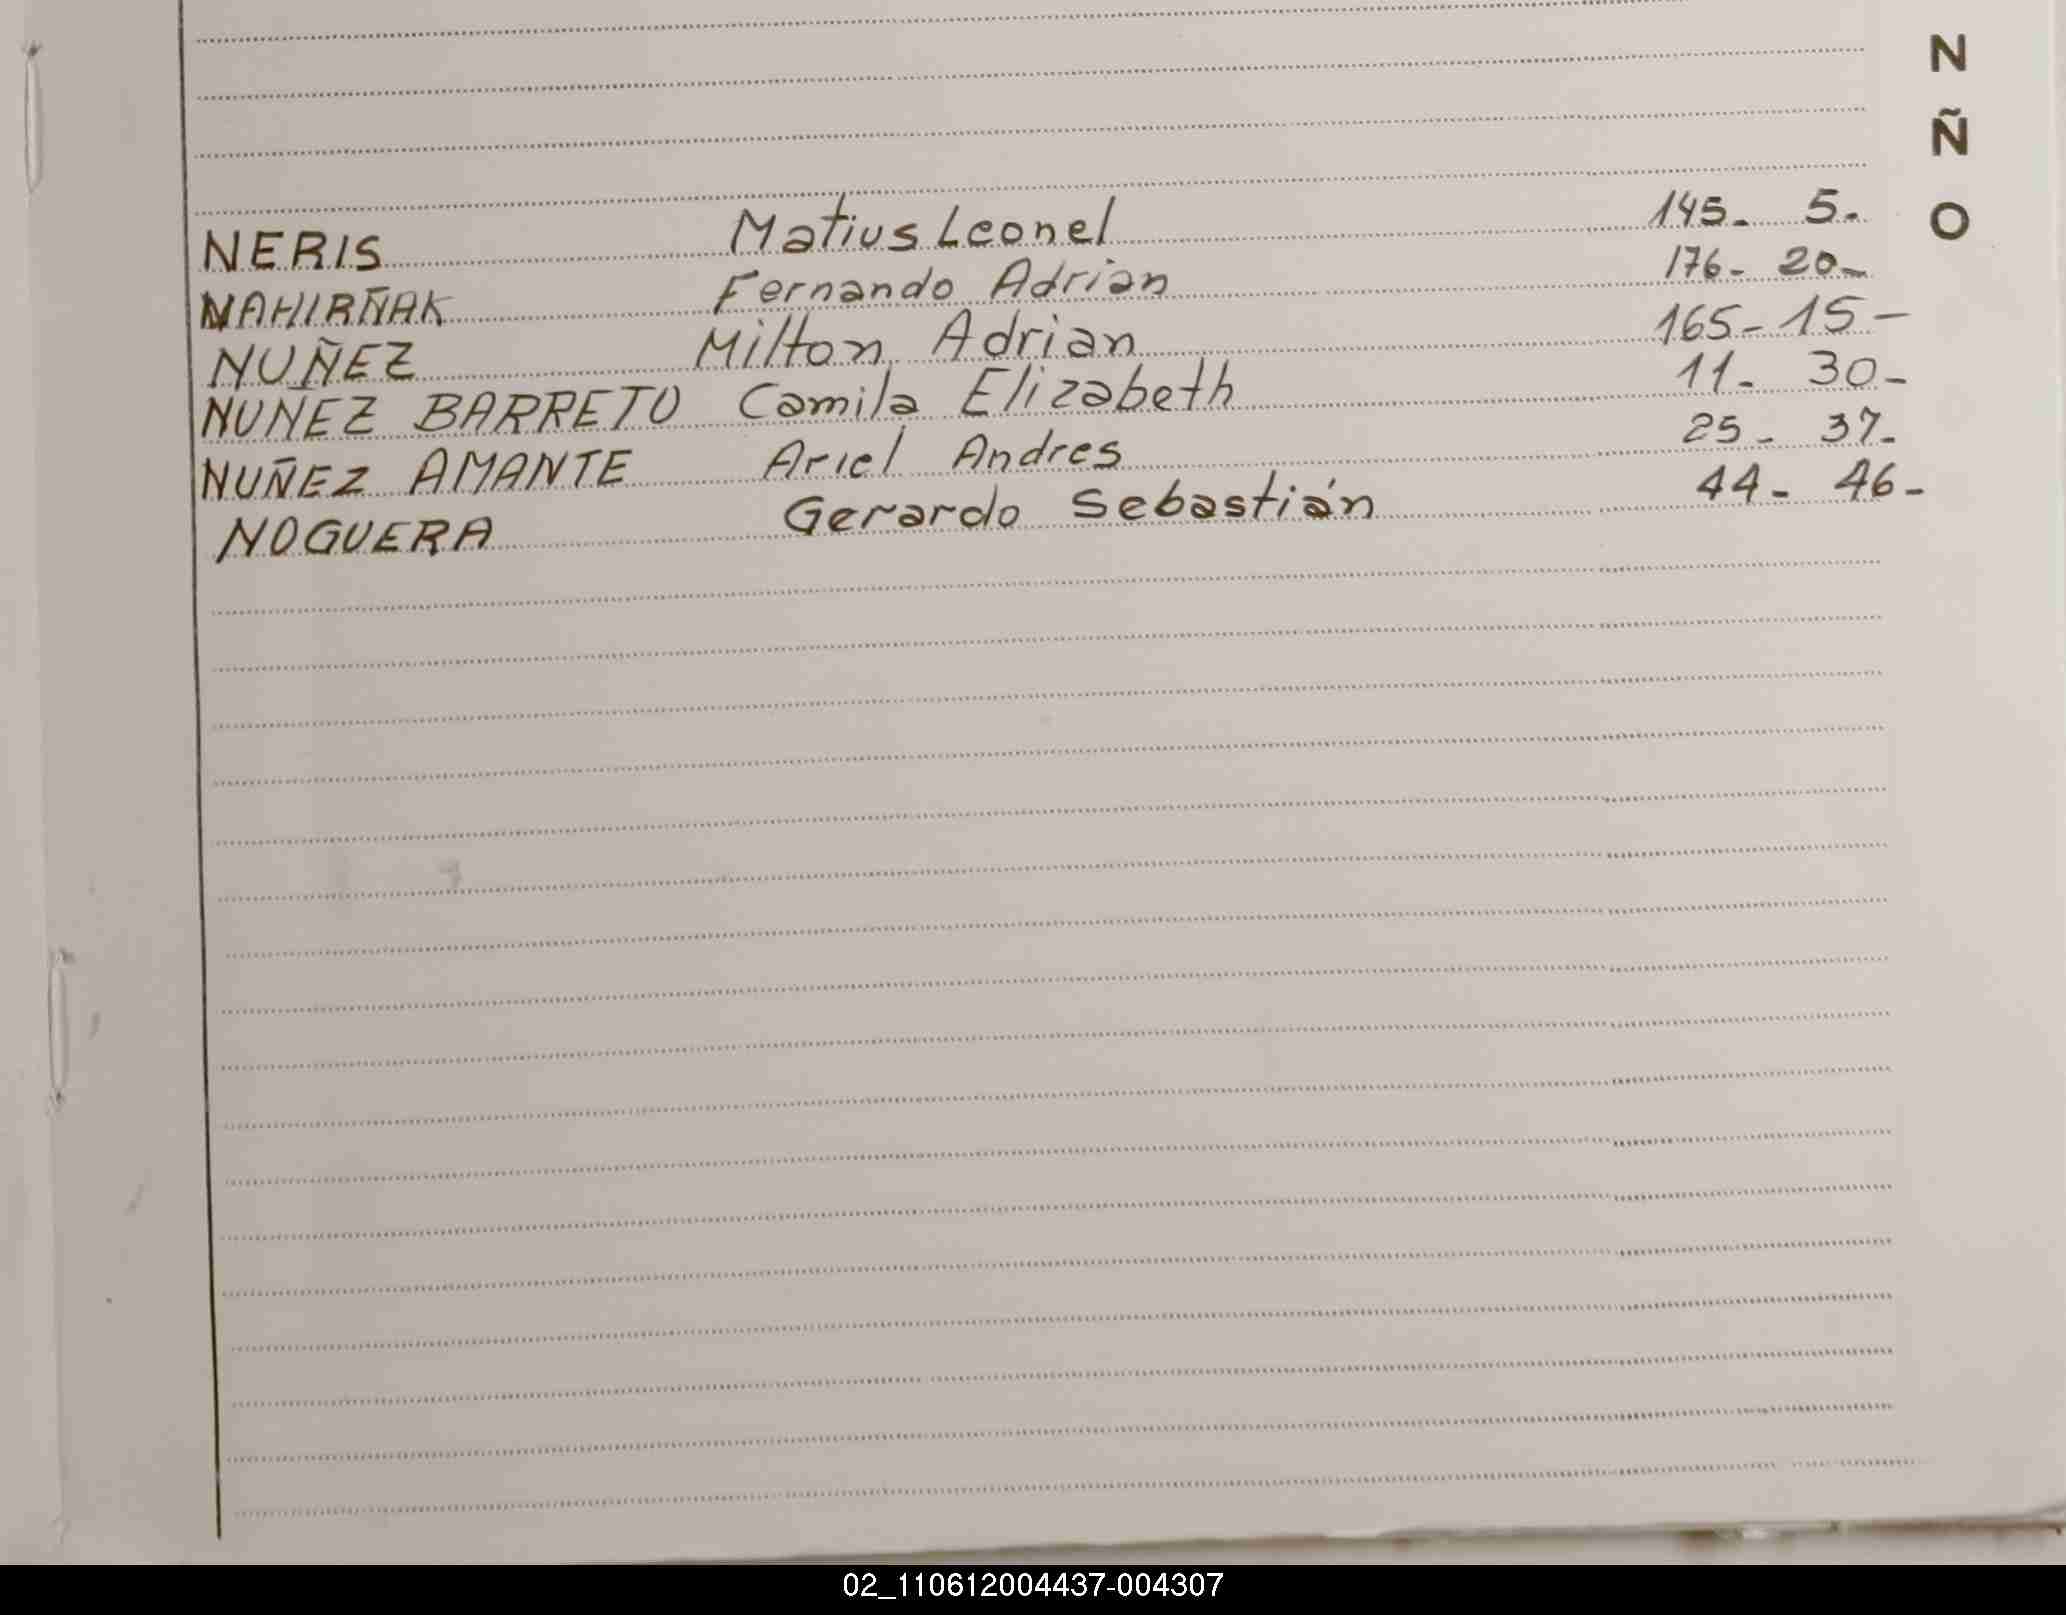 N
Ñ
O
NERIS Matius Leonel 145- 5-
NAHIRÑAK Fernando Adrian 176- 20-
NUÑEZ Milton Adrian 165- 15-
NUNEZ BARRETO Camila Elizabeth 11- 30-
NUÑEZ AMANTE Ariel Andres 25- 37-
NOGUERA Gerardo Sebastián 44- 46-
02_110612004437-004307